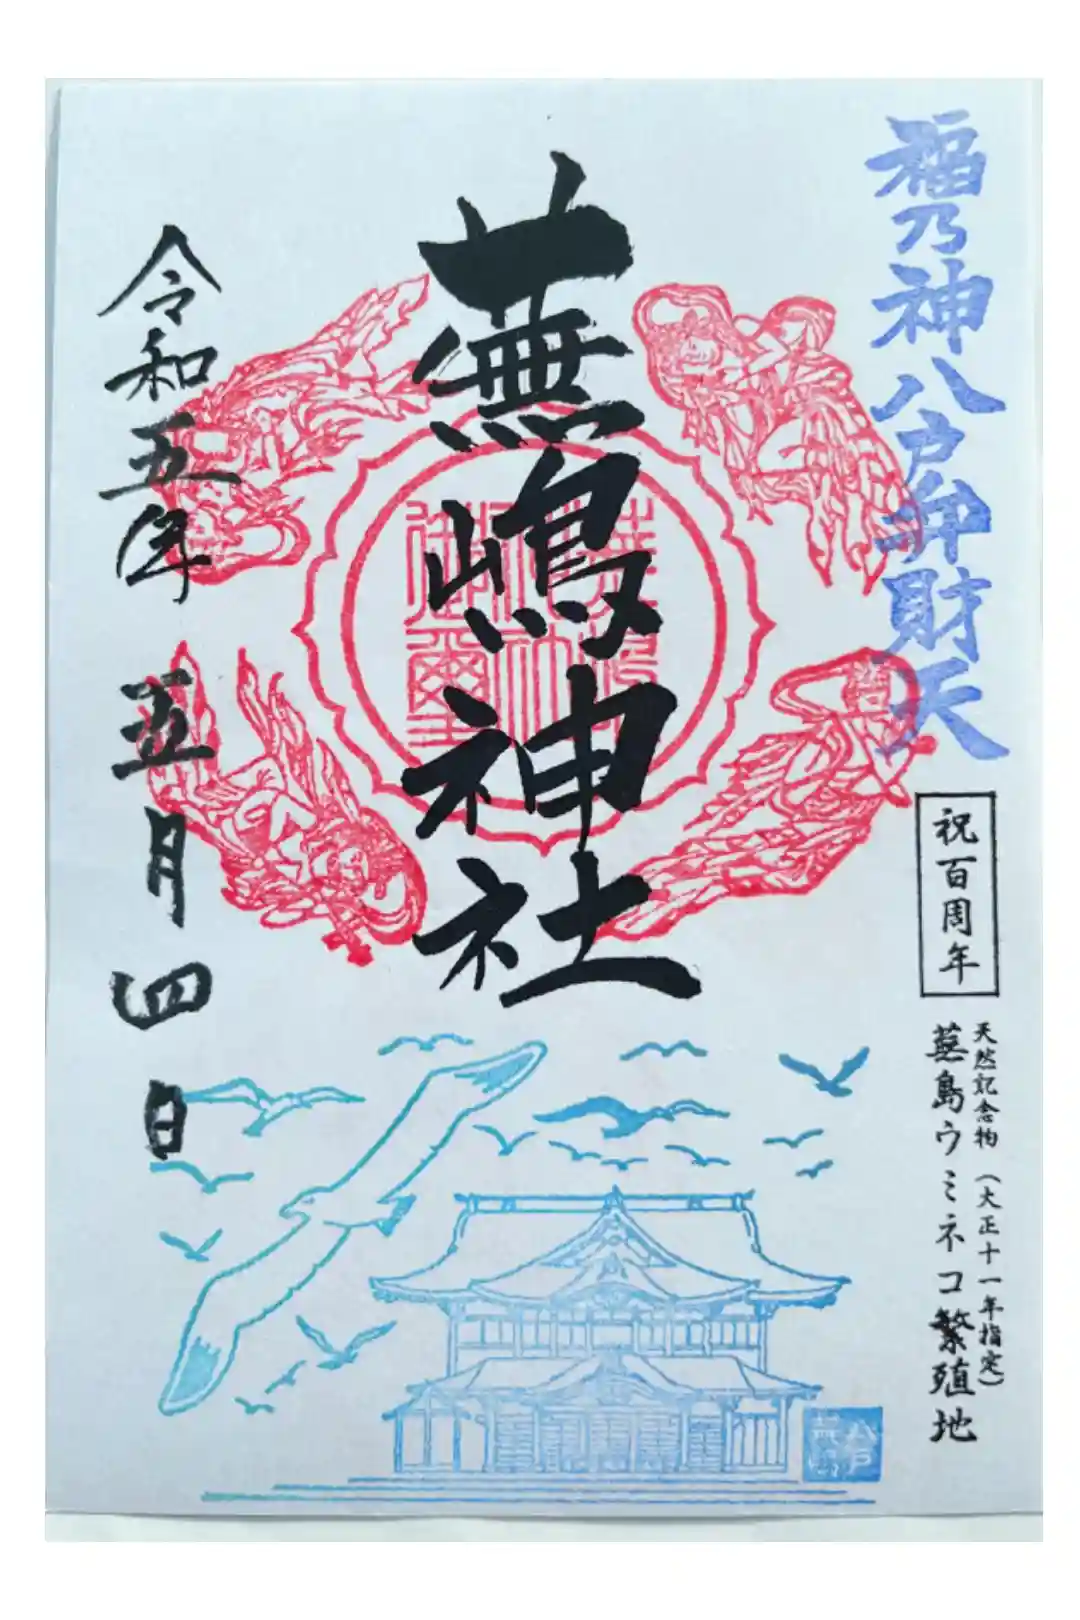 福乃神八戸弁財天
祝百周年
天然記念物（大正十一年指定）
蕪島ウミネコ繁殖地
蕪嶋神社
令和五年五月四日
八戸
蕪島